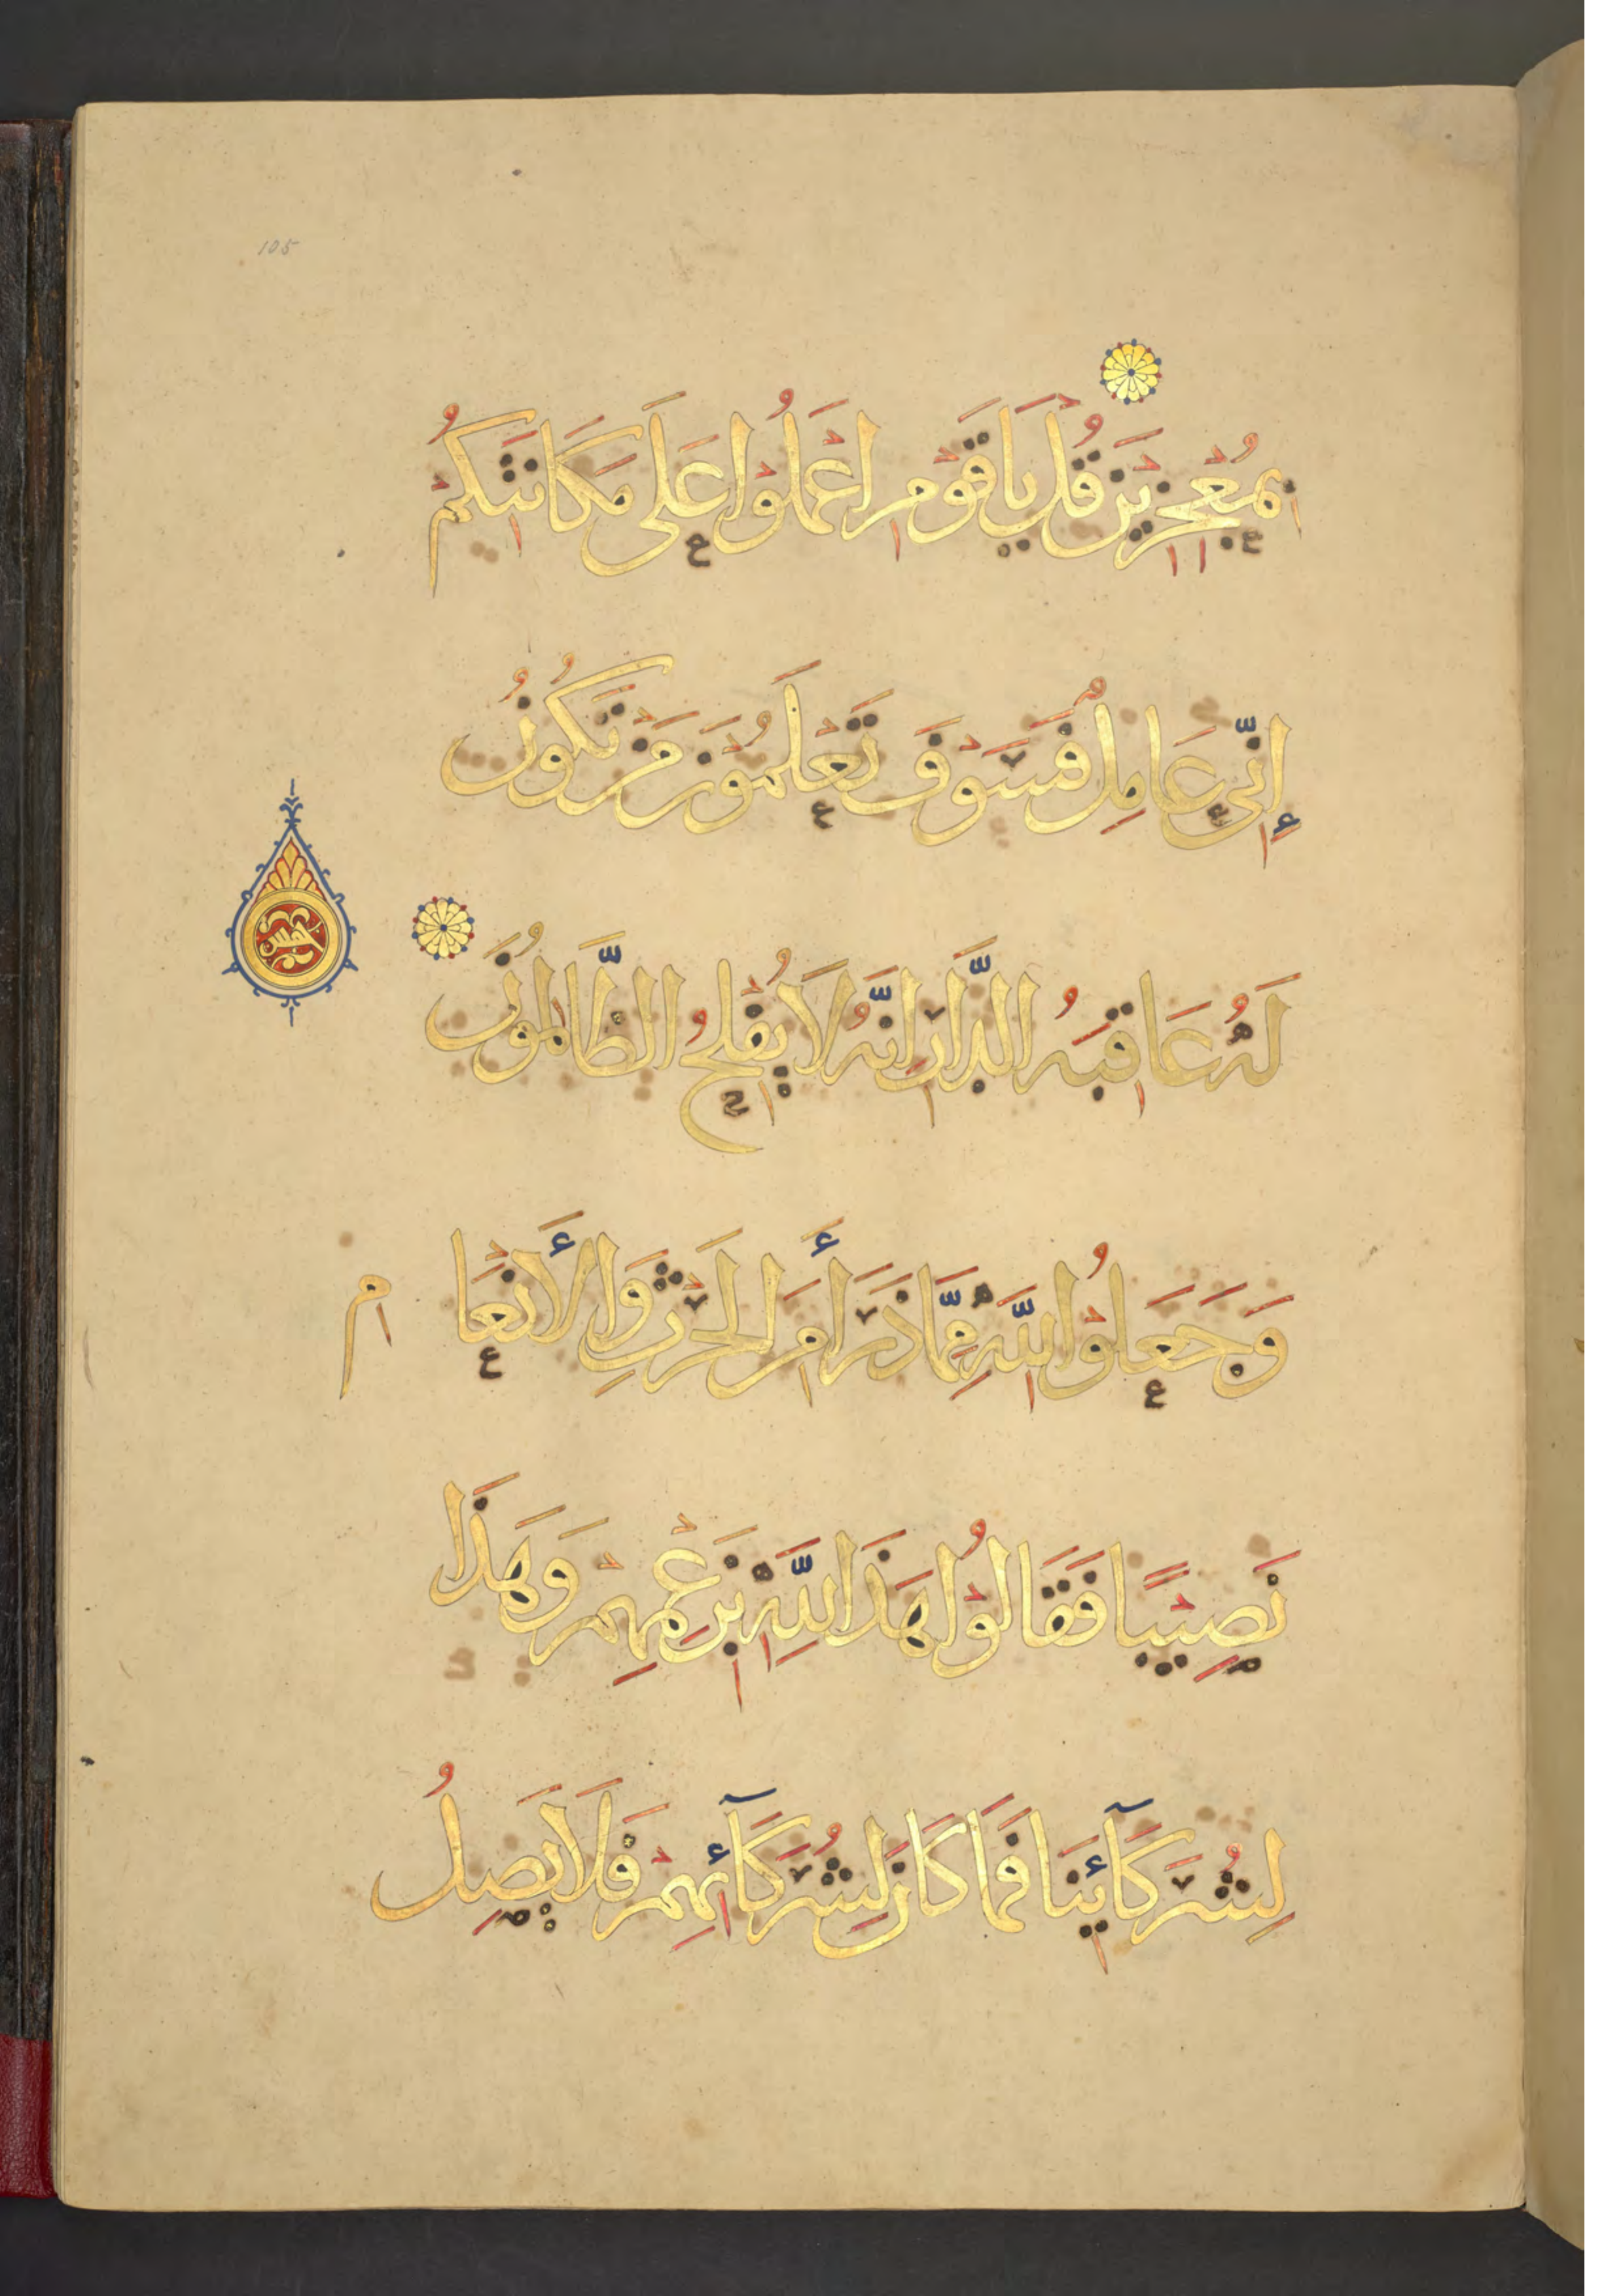 105
بِمُعْجِزِينَ قُلْ يَا قَوْمِ اعْمَلُوا عَلَى مَكَانَتِكُمْ
إِنِّي عَامِلٌ فَسَوْفَ تَعْلَمُوْنَ مَنْ تَكُونُ
لَهُ عَاقِبَةُ الدَّارِ اِنَّهُ لَا يُفْلِحُ الظَّالِمُوْنَ
خمس
وَجَعَلُوْا لِلَّهِ مِمَّا ذَرَأَ مِنَ الْحَرْثِ وَالْأَنْعَامِ
نَصِيْبًا فَقَالُوْا هَذَا لِلَّهِ بِزَعْمِهِمْ وَهَذَا
لِشُرَكَآئِنَا فَمَا كَانَ لِشُرَكَآئِهِمْ فَلَا يَصِلُ